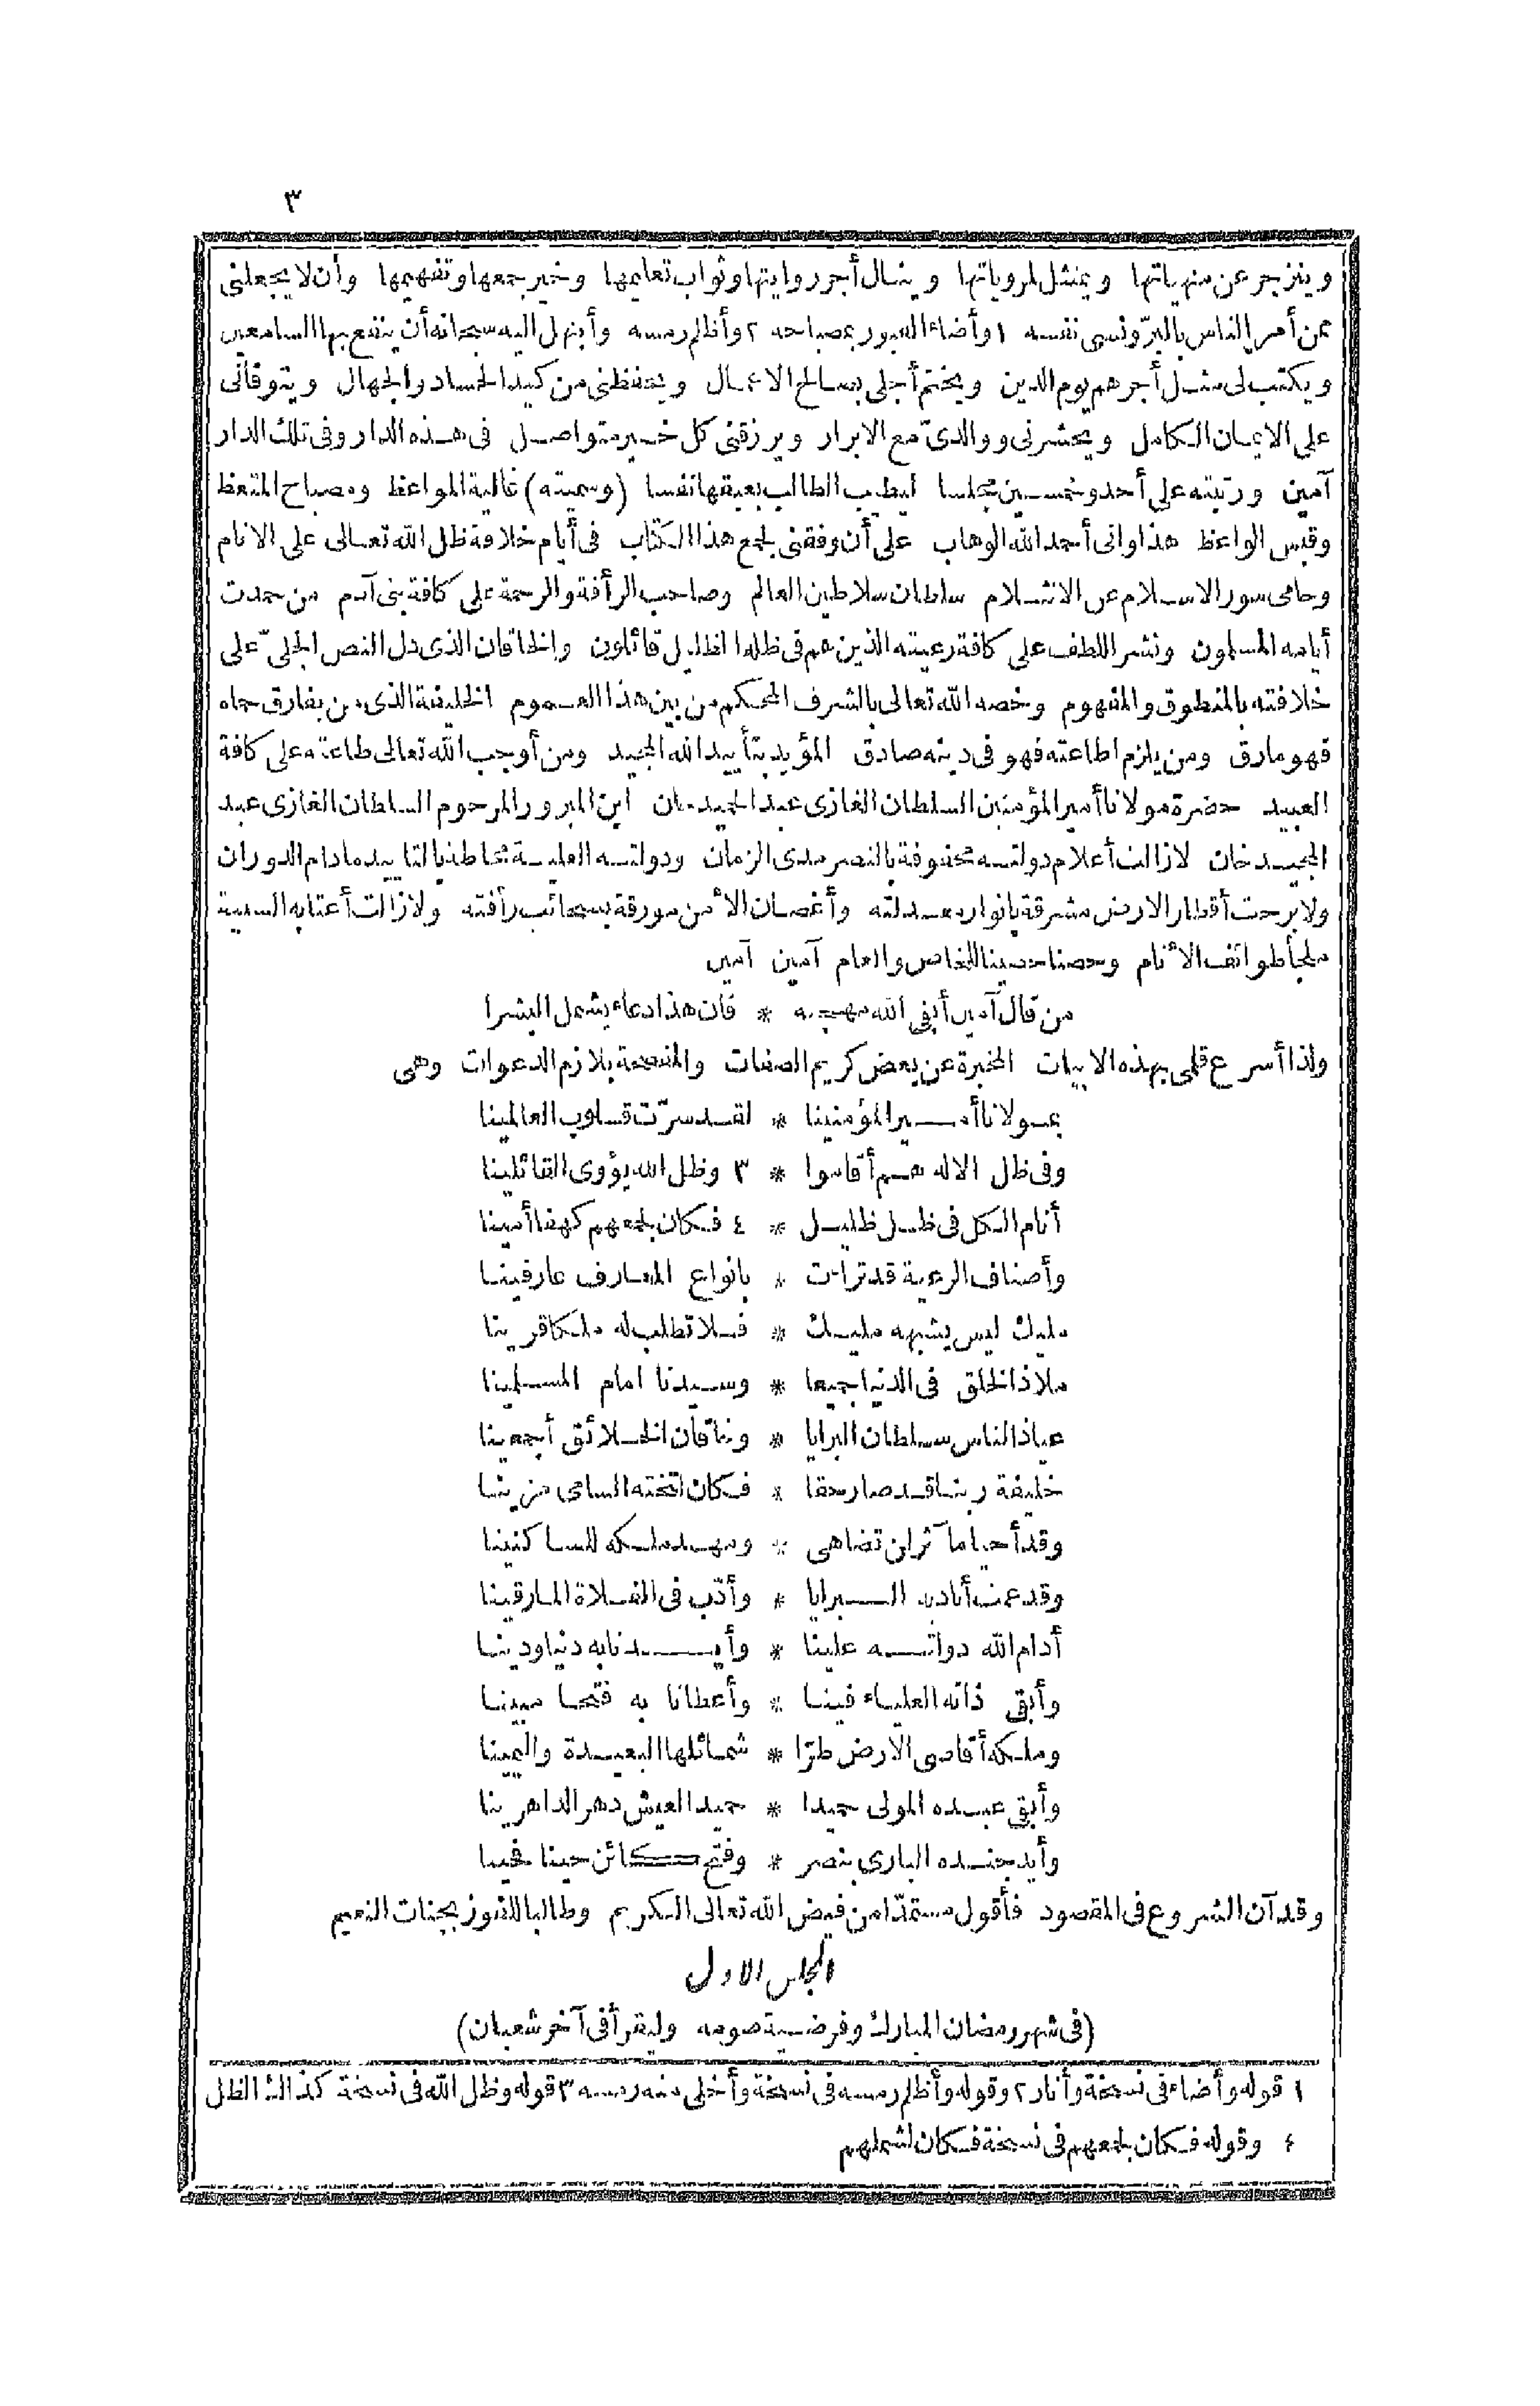 ٣
وينزجر عن منهياتها ويمتثل لمروياتها وينال أجر روايتها وثواب تعليمها وخير جمعها وتفهيمها وأن لا يجعلنى
ممن أمر الناس بالبرّ ونسى نفسه ١ وأضاء العبور بمصباحه ٢ وأظلم رمسه وأبتهل اليه سبحانه أن ينفع بها السامعين
ويكتب لى مثل أجرهم يوم الدين ويختم أجلى بصالح الاعمال ويحفظنى من كيد الحساد والجهال ويتوفانى
على الايمان الكامل ويحشرنى ووالدىّ مع الابرار ويرزقنى كل خير متواصل فى هذه الدار وفى تلك الدار
آمين ورتبته على أحد وخمسين مجلسا ليطيب الطالب بعبقها نفسا (وسميته) غالية المواعظ ومصباح المتعظ
وقبس الواعظ هذا وانى أحمد الله الوهاب على أن وفقنى لجمع هذا الكتاب فى أيام خلافة ظل الله تعالى على الانام
وحامى سور الاسلام عن الانثلام سلطان سلاطين العالم وصاحب الرأفة والرحمة على كافة بنى آدم من حمدت
أيامه المسلمون ونشر اللطف على كافة رعيته الذين هم فى ظله الظليل قائلون والخاقان الذى دل النص الجلىّ على
خلافته بالمنطوق والمفهوم وخصه الله تعالى بالشرف المحكم من بين هذا العموم الخليفة الذى من يفارق حماه
فهو مارق ومن يلزم اطاعته فهو فى دينه صادق المؤيد بتأييد الله المجيد ومن أوجب الله تعالى طاعته على كافة
العبيد حضرة مولانا أمير المؤمنين السلطان الغازى عبد الحميد خان ابن المبرور المرحوم السلطان الغازى عبد
المجيد خان لازالت أعلام دولته محفوفة بالنصر مدى الزمان ودولته العلية محاطة بالتاييد مادام الدوران
ولا برحت أقطار الارض مشرقة بانوار معدلته وأغصان الأمن مورقة بسحائب رأفته ولا زالت أعتابه السمية
ملجأ طوائف الأنام وحصنا حصينا للخاص والعام آمين آمين
من قال آمين أبقى الله مهجته * فان هذا دعاء يشمل البشرا
ولذا أسرع قلمى بهذه الابيات المخبرة عن بعض كريم الصفات والمفصحة بلازم الدعوات وهى
بمولانا أمير المؤمنينا * لقد سرّت قلوب العالمينا
وفى ظل الاله هم أقاموا * ٣ وظل الله يؤوى القائلينا
أنام الكل فى ظل ظليل * ٤ فكان لجمعهم كهفا أمينا
وأصناف الرعية قد تراءت * بانواع المعارف عارفينا
مليك ليس يشبهه مليك * فلا تطلب له ملكا قرينا
ملاذ الخلق فى الدنيا جميعا * وسيدنا امام المسلمينا
عياذ الناس سلطان البرايا * وخاقان الخلائق أجمعينا
خليفة ربنا قد صار حقا * فكان لتخته السامى مزينا
وقد أحيا مآثر لن تضاهى * ومهد ملكه للساكنينا
وقد عمت أياديه البرايا * وأدّب فى الفلاة المارقينا
أدام الله دولته علينا * وأيدنا به دنيا ودينا
وأبقى ذاته العلياء فينا * وأعطانا به فتحا مبينا
وملكه أقاصى الارض طرّا * شمائلها البعيدة واليمينا
وأبقى عبده المولى حميدا * حميد العيش دهر الداهرينا
وأيد جنده البارى بنصر * وفتح كائن حينا فحينا
وقد آن الشروع فى المقصود فأقول مستمدّا من فيض الله تعالى الكريم وطالبا للفوز بجنات النعيم
المجلس الاول
(فى شهر رمضان المبارك وفرضية صومه وليقرأ فى آخر شعبان)
١ قوله وأضاء فى نسخة وأنار ٢ وقوله وأظلم رمسه فى نسخة وأخلى منه رمسه ٣ قوله وظل الله فى نسخة كذاك الظل
٤ وقوله فكان لجمعهم فى نسخة فكان لشملهم